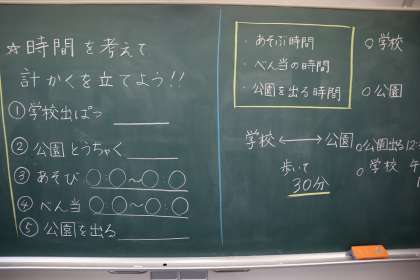 ☆時間を考えて
計かくを立てよう!!
①学校出ぱつ
②公園とうちゃく
③あそび ○:○~○:○
④べん当 ○:○~○:○
⑤公園を出る
・あそぶ時間
・べん当の時間
・公園を出る時間
○学校
○公園
学校⟷公園
歩いて
30分
○公園出る12:
○学校 午